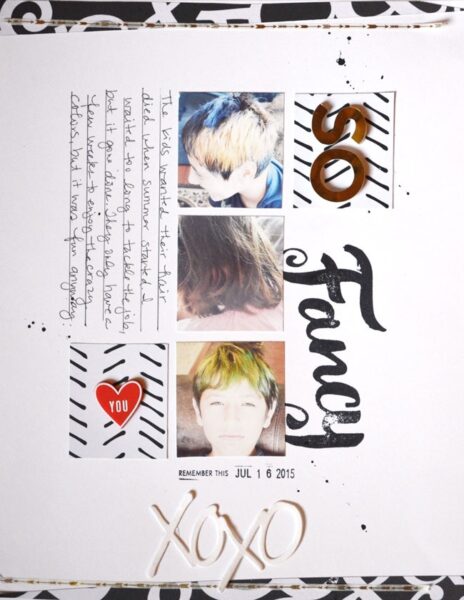 The kids wanted their hair
died when summer started. I
waited too long to tackle the job,
but it got done. They only have a
few weeks to enjoy the crazy
colors, but it was fun anyway.
SO
Fancy
YOU
REMEMBER THIS JUL 16 2015
XOXO